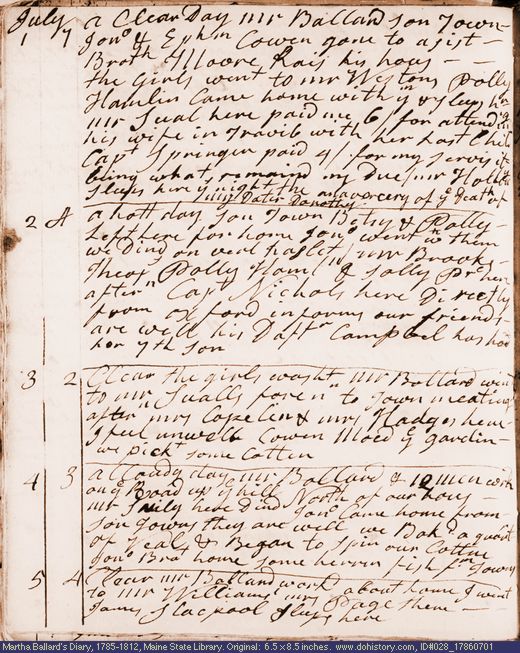 July
1 7 a Clear Day mr Ballard son Town
Jono & Ephm Cowen gone to asist
Broth Moore Rais his hous
the Girls went to mr Westons Polly
Hamlin Came home with ym & sleeps hr
mr Suall here paid me 6/ for attending
his wife in Travil with her last Child
Capt Springer paid 4/ for my servis it
being what remaind my Due mr
Sleeps here ys night the anavercery of ye Death of
my Daughter
2 A a hott day son Town Betsy & Polly
Left here for home Jono went wth them
we Dind on veal haslit mr Brooks
Theop Polly Ham & Sally Pr here
aftern Capt Nichols here Directly
from Oxford informs our friends
are well his Daftr Campbel has had
her 7th son
3 2 Clear the girls washt mr Ballard went
to mr Sualls foren to Town meeting
aftern mrs Copelin & mrs Hodges here
I feel unwell Cowen Moed ye gardin
we pickt some Cotten
4 3 a Cloudy day mr Ballard & 12 men with
on ye Road up ye hill North of our hous
mr here Dind Jono Came home from
son Towns they are well we Bakt a quart
of veal & Began to spin our Cotten
Jono Brot home some herrin fish fm Towns
5 4 Clear mr Ballard workt about home I went
to mr Williams mrs Page there
James Stacpool sleeps here
Martha Ballard's Diary, 1785-1812, Maine State Library. Original: 6.5 x 8.5 inches. www.dohistory.com, ID#028_17860701